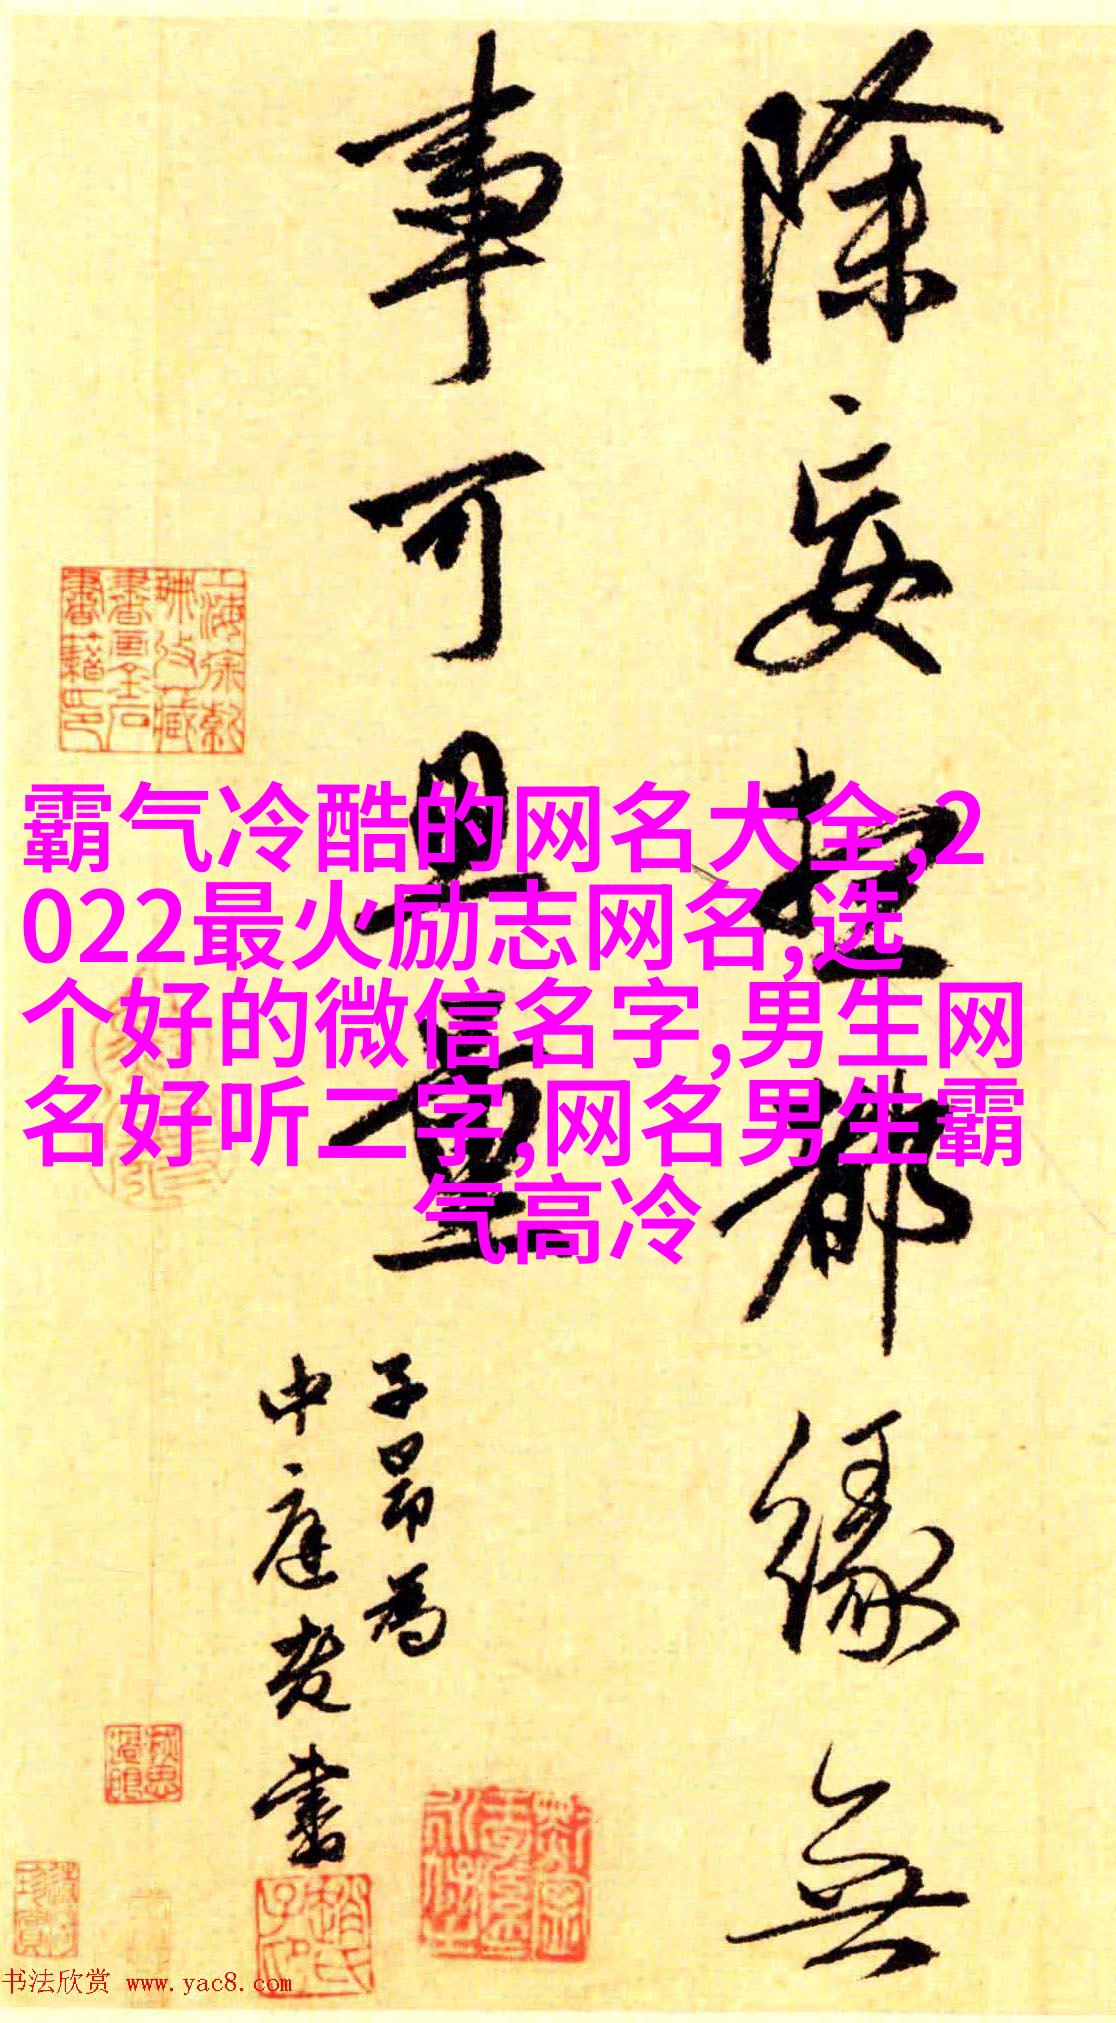 除妄想都緣無
事可思量
子昂為
中庭書
霸气冷酷的网名大全,2
022最火励志网名,选
个好的微信名字,男生网
名好听二字,网名男生霸
气高冷
趙氏子昂
书法欣赏 www.yac8.com